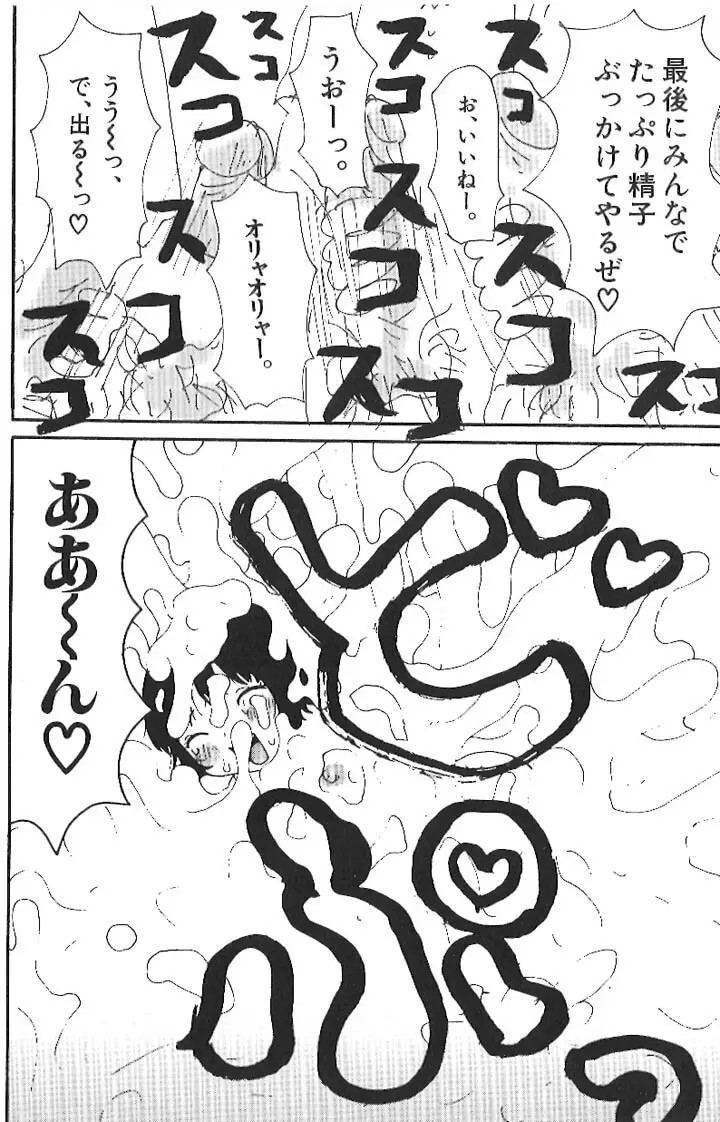 最後にみんなで
たっぷり精子
ぶっかけてやるぜ♡
スコ
お、いいねー。
スコ
スコ
スコ
スコ
うおーっ。
スコ
スコ
スコ
スコ
オリャオリャー。
スコ
スコ
うう〜っ、
で、出る〜っ♡
どぷっ♡♡
ああ〜ん♡